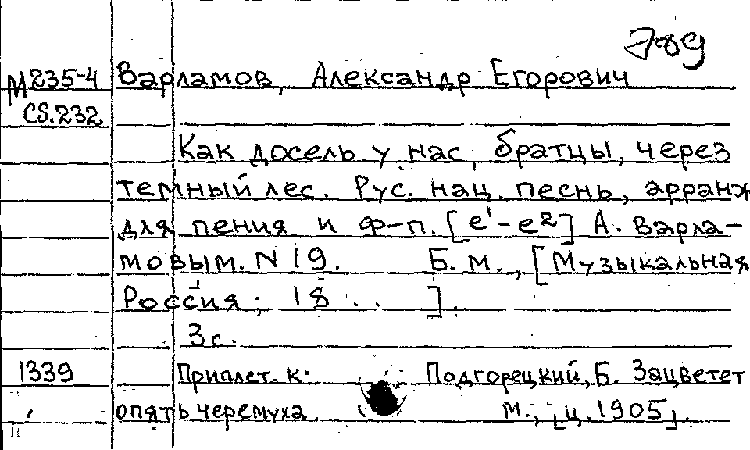 789
М235-4 Варламов, Александр Егорович
CS.232
Как досель у нас, братцы, через
темный лес. Рус. нац. песнь, арранж
для пения и ф-п. [e¹-e²] А. Варла-
мовым. N 19. Б.м., [Музыкальная
Россия; 18 . . ].
3с.
1339 Приплет. к: Подгорецкий, Б. Зацветет
опять черемуха. М., [ц. 1905].